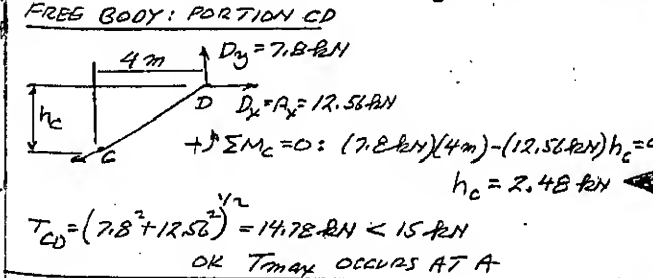 FREE BODY: PORTION CD
4 m
Dy = 7.8 kN
hc
D
Dx = Ax = 12.56 kN
C
+↺ ΣMc = 0: (7.8 kN)(4m) - (12.56 kN)hc = 0
hc = 2.48 kN ◄
TCD = (7.8² + 12.56²)^1/2 = 14.78 kN < 15 kN
OK Tmax OCCURS AT A